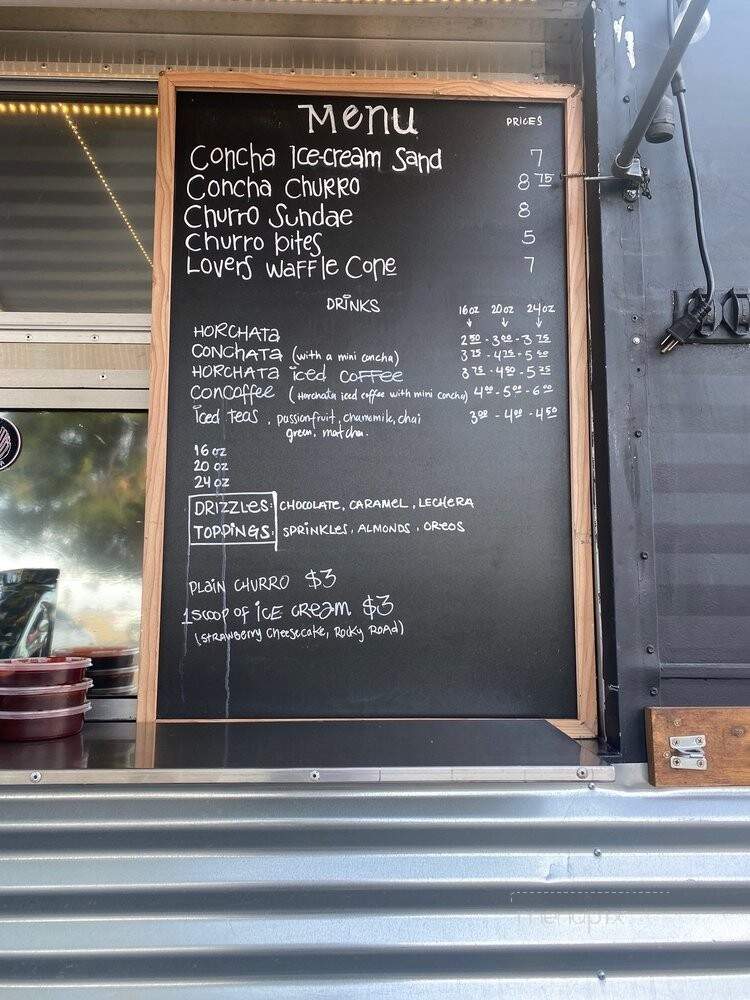 Menu PRICES
Concha Ice-cream Sand 7
Concha CHURRO 8 75
Churro Sundae 8
Churro bites 5
Lovers Waffle Cone 7
DRINKS 16oz 20oz 24oz
HORCHATA 2 50 - 3 00 - 3 75
CONCHATA (with a mini concha) 3 75 - 4 75 - 5 50
HORCHATA iced coffee 3 75 - 4 50 - 5 75
Concoffee (Horchata iced coffee with mini concha) 4 00 - 5 00 - 6 00
iced teas , passionfruit, chamomile, chai 3 00 - 4 00 - 4 50
green, matcha.
16 oz
20 oz
24 oz
DRIZZLES: CHOCOLATE, CARAMEL, LECHERA
TOPPINGS: SPRINKLES, ALMONDS, OREOS
PLAIN CHURRO $3
1 SCOOP of ICE CREAM $3
(STRAWBERRY CHEESECAKE, ROCKY ROAD)
menupix